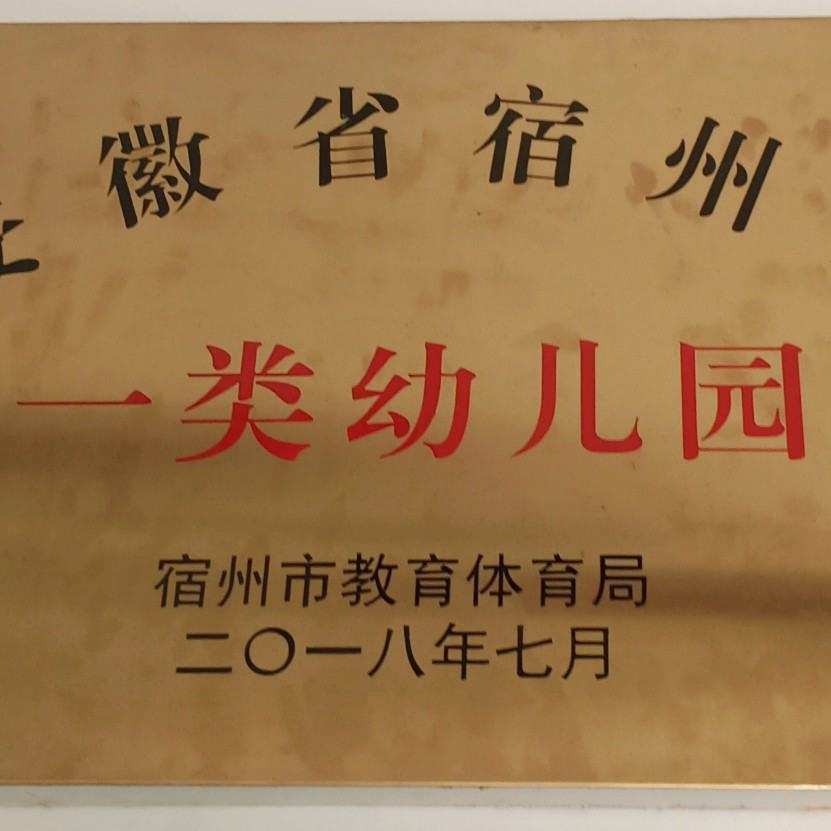 徽省宿州
一类幼儿园
宿州市教育体育局
二〇一八年七月